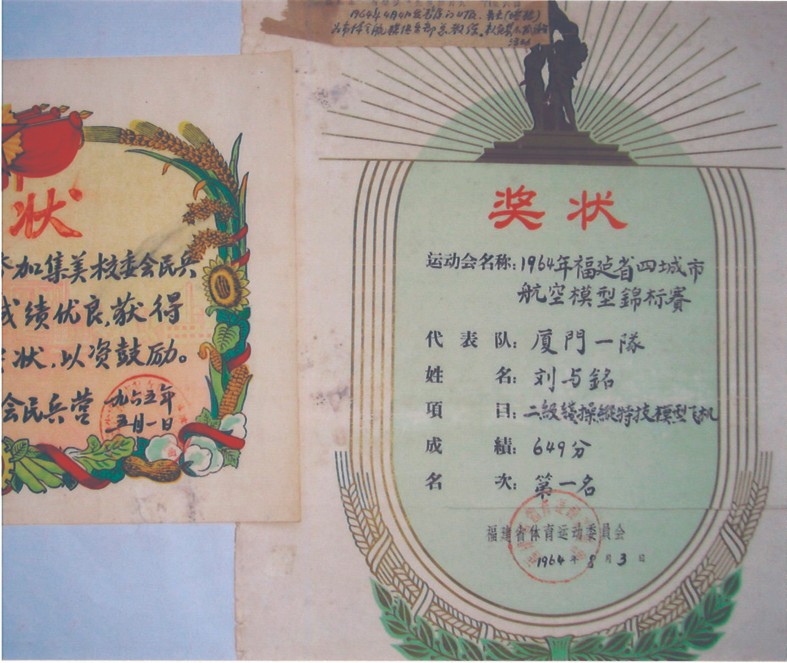 状
参加集美校委会民兵
成绩优良,获得
状,以资鼓励。
会民兵营 一九六五年
五月一日
奖状
运动会名称:1964年福建省四城市
航空模型錦标賽
代表队:厦門一隊
姓名:刘与銘
項目:二級綫操縱特技模型飞机
成績:649分
名次:第一名
福建省体育运动委員会
1964年8月3日